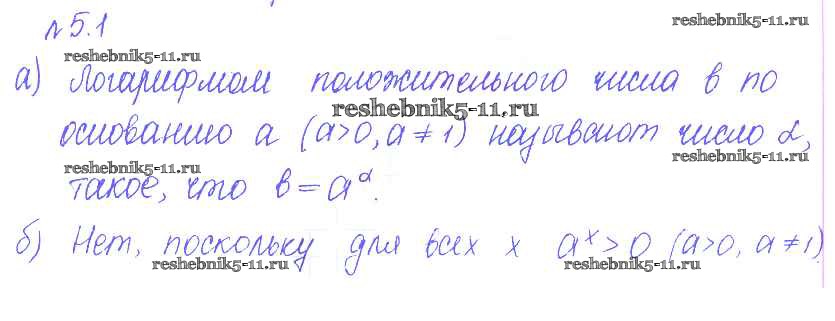 №5.1
reshebnik5-11.ru
reshebnik5-11.ru
а) Логарифмом положительного числа b по
reshebnik5-11.ru
основанию a (a>0, a≠1) называют число α,
reshebnik5-11.ru
reshebnik5-11.ru
такое, что b=a^α.
б) Нет, поскольку для всех x a^x>0 (a>0, a≠1)
reshebnik5-11.ru
reshebnik5-11.ru